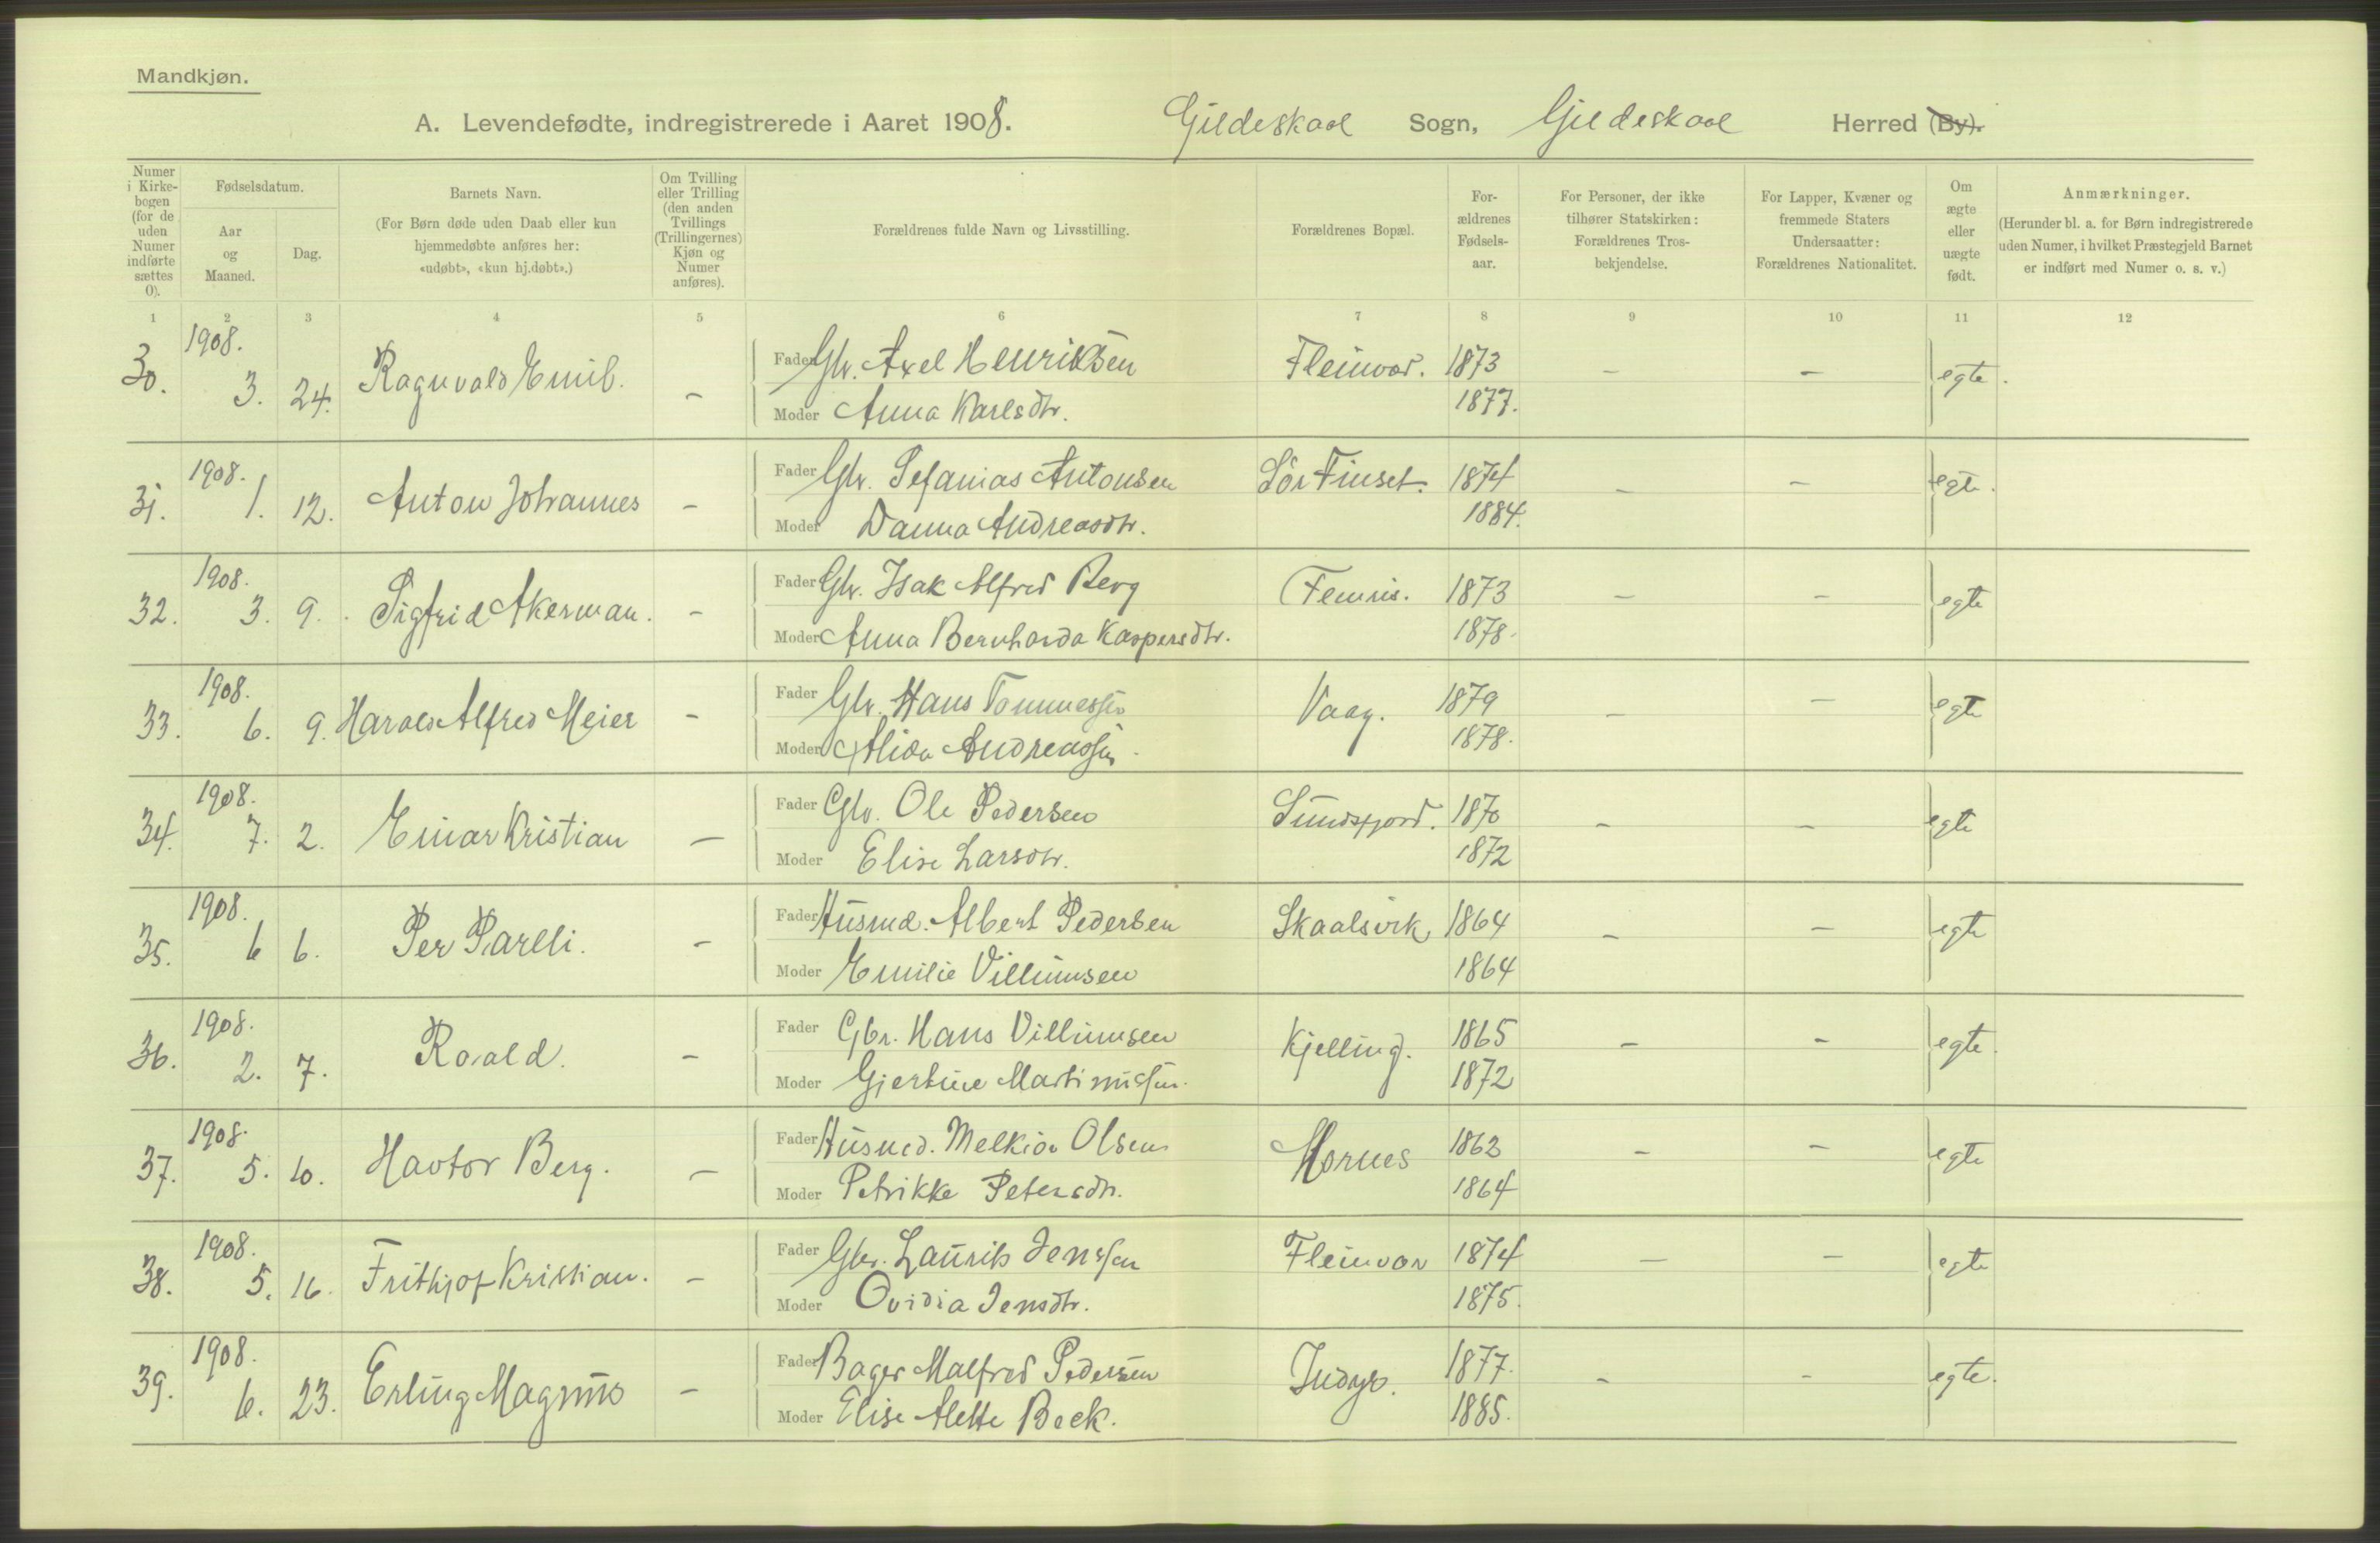 Mandkjøn.
A. Levendefødte, indregistrerede i Aaret 1908. Gildeskaal Sogn, Gildeskaal Herred (By).
Numer i Kirkebogen (for de uden Numer indførte sættes 0).
Fødselsdatum.
Aar og Maaned.
Dag.
Barnets Navn.
(For Børn døde uden Daab eller kun hjemmedøbte anføres her: «udøbt», «kun hj.døbt».)
Om Tvilling eller Trilling (den anden Tvillings (Trillingernes) Kjøn og Numer anføres).
Forældrenes fulde Navn og Livsstilling.
Forældrenes Bopæl.
Forældrenes Fødselsaar.
For Personer, der ikke tilhører Statskirken: Forældrenes Trosbekjendelse.
For Lapper, Kvæner og fremmede Staters Undersaatter: Forældrenes Nationalitet.
Om ægte eller uægte født.
Anmærkninger.
(Herunder bl. a. for Børn indregistrerede uden Numer, i hvilket Præstegjeld Barnet er indført med Numer o. s. v.)
1 2 3 4 5 6 7 8 9 10 11 12
30. 1908. 3. 24. Ragnvald Emil. - Fader Gbr. Axel Henriksen Fleinvær. 1873 - - egte.
Moder Anna Karlsdtr. 1877.
31. 1908. 1. 12. Anton Johannes - Fader Gbr. Sefanias Antonsen Sör Finset. 1874 - - egte.
Moder Danna Andreasdtr. 1884.
32. 1908. 3. 9. Sigfrid Akerman. - Fader Gbr. Isak Alfred Berg Femris. 1873 - - egte
Moder Anna Bernharda Kaspersdtr. 1878.
33. 1908. 6. 9. Harald Alfred Meier - Fader Gbr. Hans Tommessen Vaag. 1879 - - egte
Moder Alida Andreassen. 1878.
34. 1908. 7. 2. Einar Kristian - Fader Gbr. Ole Pedersen Sundsfjord. 1870 - - egte
Moder Elise Larsdtr. 1872
35. 1908. 6 6. Per Parelli. - Fader Husmd. Albert Pedersen Skaalsvik 1864 - - egte
Moder Emilie Villumsen 1864
36. 1908. 2. 7. Roald. - Fader Gbr. Hans Villumsen Kjelling. 1865 - - egte.
Moder Gjertine Martinussen. 1872
37. 1908. 5. 10. Havtor Berg. - Fader Husmd. Melkior Olsen Mornes 1863 - - egte
Moder Petrikke Petersdtr. 1864
38. 1908. 5. 16. Frithjof Kristian. - Fader Gbr. Laurits Jenssen Fleinvær 1874 - - egte
Moder Ovidia Jensdtr. 1875.
39. 1908. 6. 23. Erling Magnus - Fader Bager Malfred Pedersen Indyr. 1877. - - egte.
Moder Elise Alette Beck. 1885.